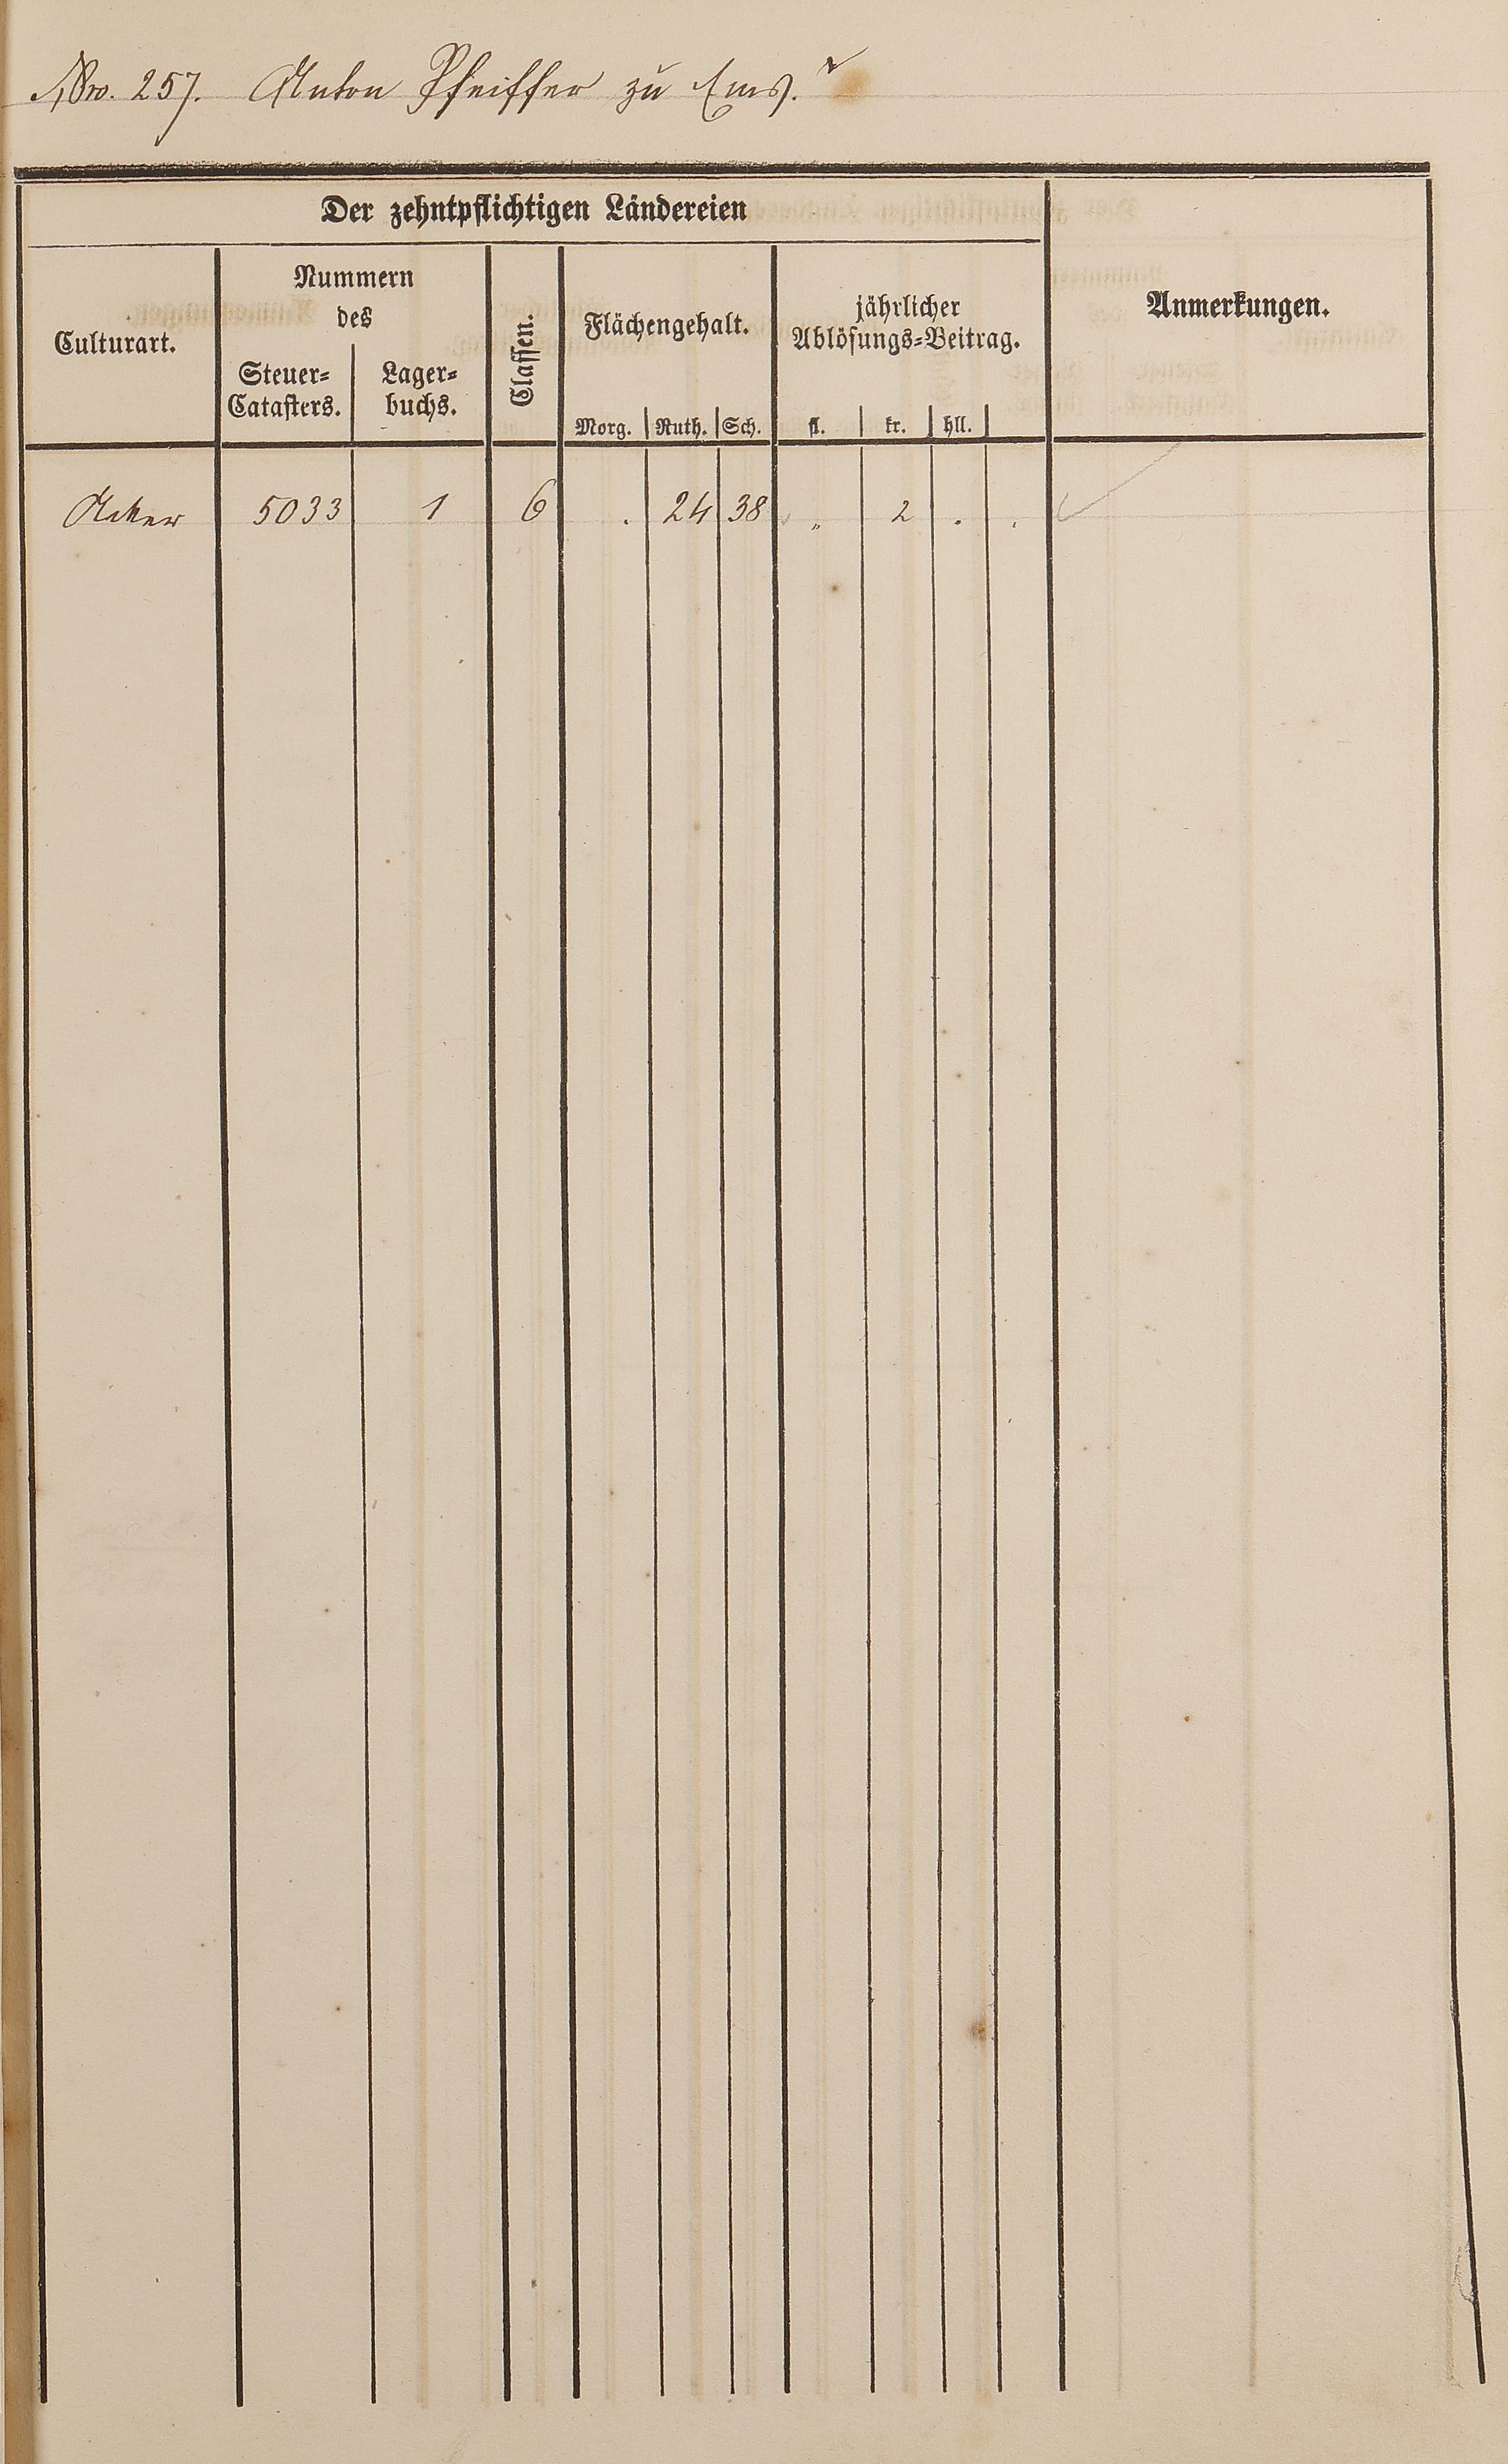 Nro. 257. Anton Pfeiffer zu Ems.
Der zehntpflichtigen Ländereien
Culturart.
Nummern
des
Steuer-
Catasters.
Lager-
buchs.
Classen.
Flächengehalt.
Morg. Ruth. Sch.
jährlicher
Ablösungs-Beitrag.
fl. kr. hll.
Anmerkungen.
Acker 5033 1 6 . 24 38 „ 2 . .